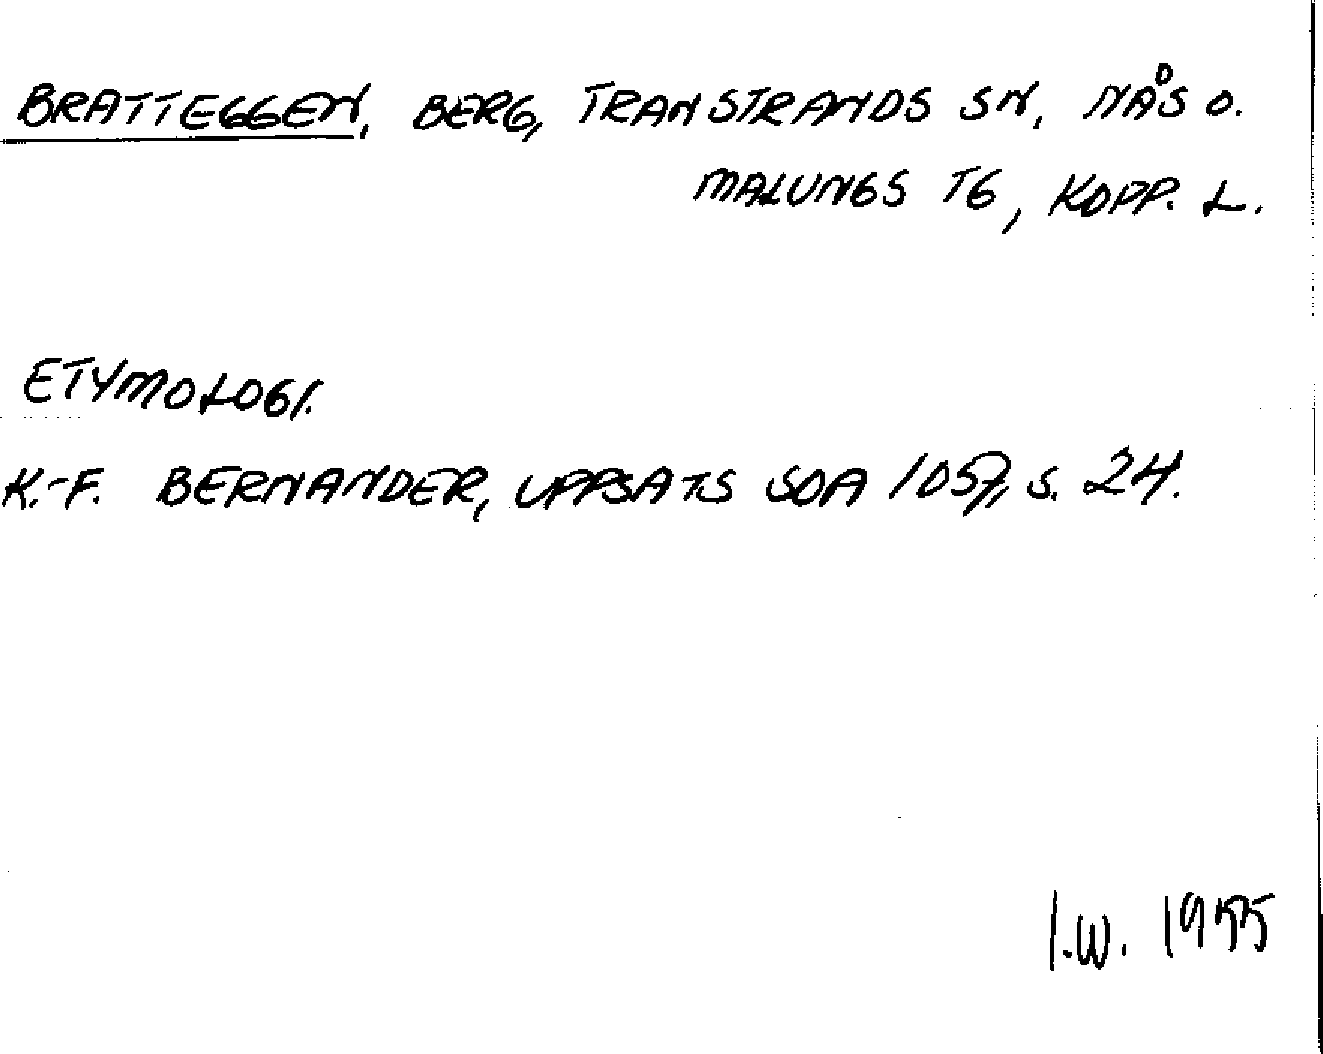 BRATTEGGEN, BERG, TRANSTRANDS SN, NÅS O.
MALUNGS TG, KOPP. L.
ETYMOLOGI.
K.-F. BERNANDER, UPPSATS SOA 1057, S. 24.
I.W. 1955